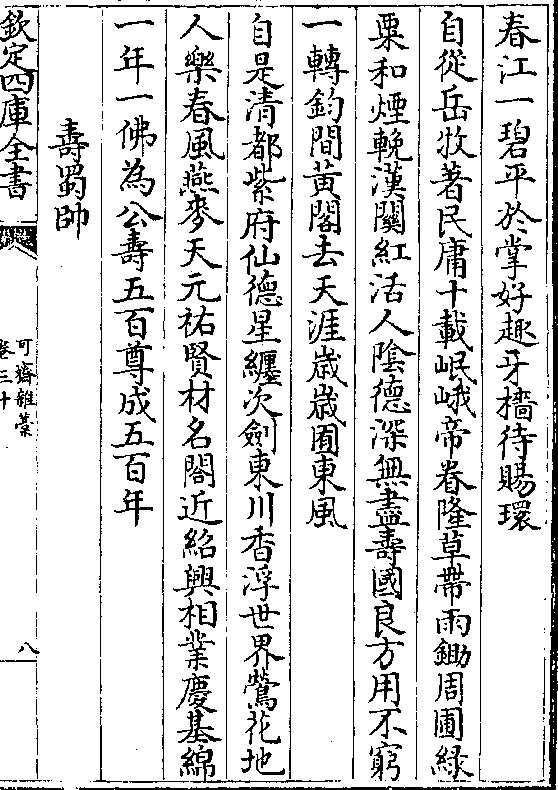 春江一碧平於掌好趣牙檣待賜環
自從岳牧著民庸十載岷峨帝眷隆草帶雨鋤周圃緑
粟和煙輓漢關紅活人陰德深無盡壽國良方用不窮
一轉鈞間黃閣去天涯歳歳囿東風
自是清都紫府仙德星纏次劍東川香浮世界鶯花地
人樂春風燕麥天元祐賢材名閣近紹興相業慶基綿
一年一佛為公壽五百尊成五百年
壽蜀帥
欽定四庫全書
可齋雜藁
卷三十
八